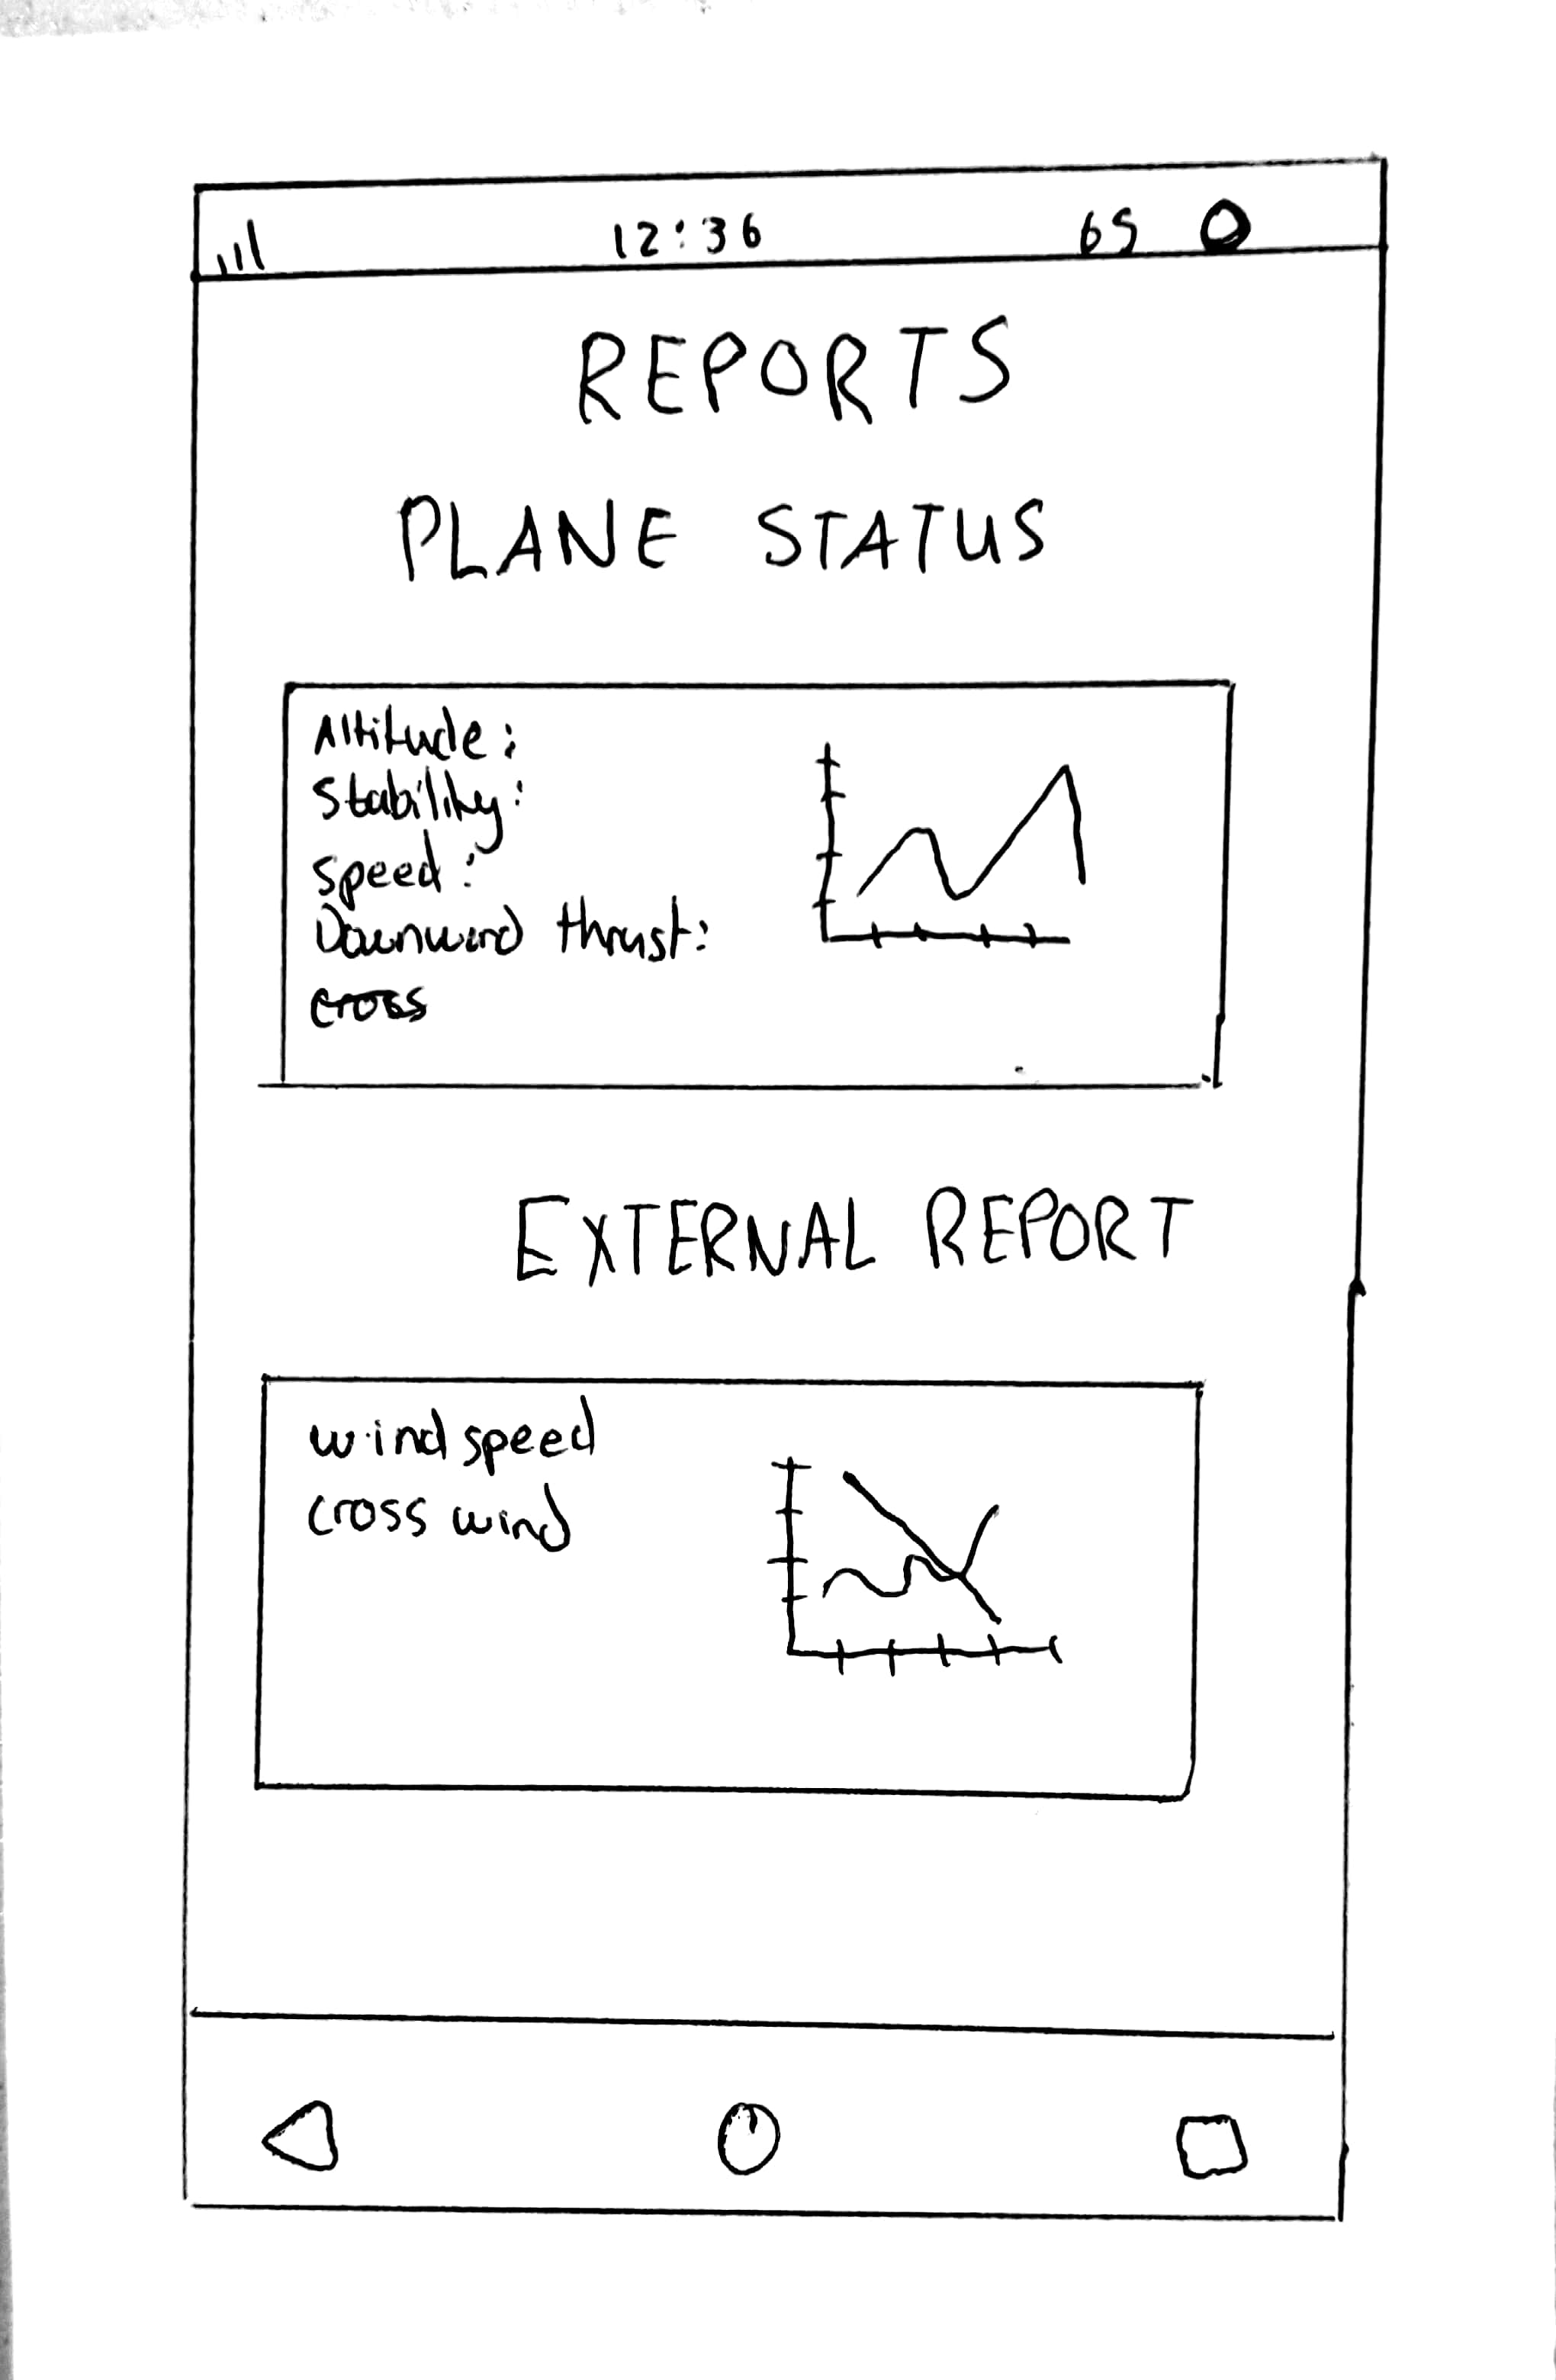 12:36 65
REPORTS
PLANE STATUS
Altitude:
Stability:
Speed:
Downward thrust:
cross
EXTERNAL REPORT
wind speed
cross wind